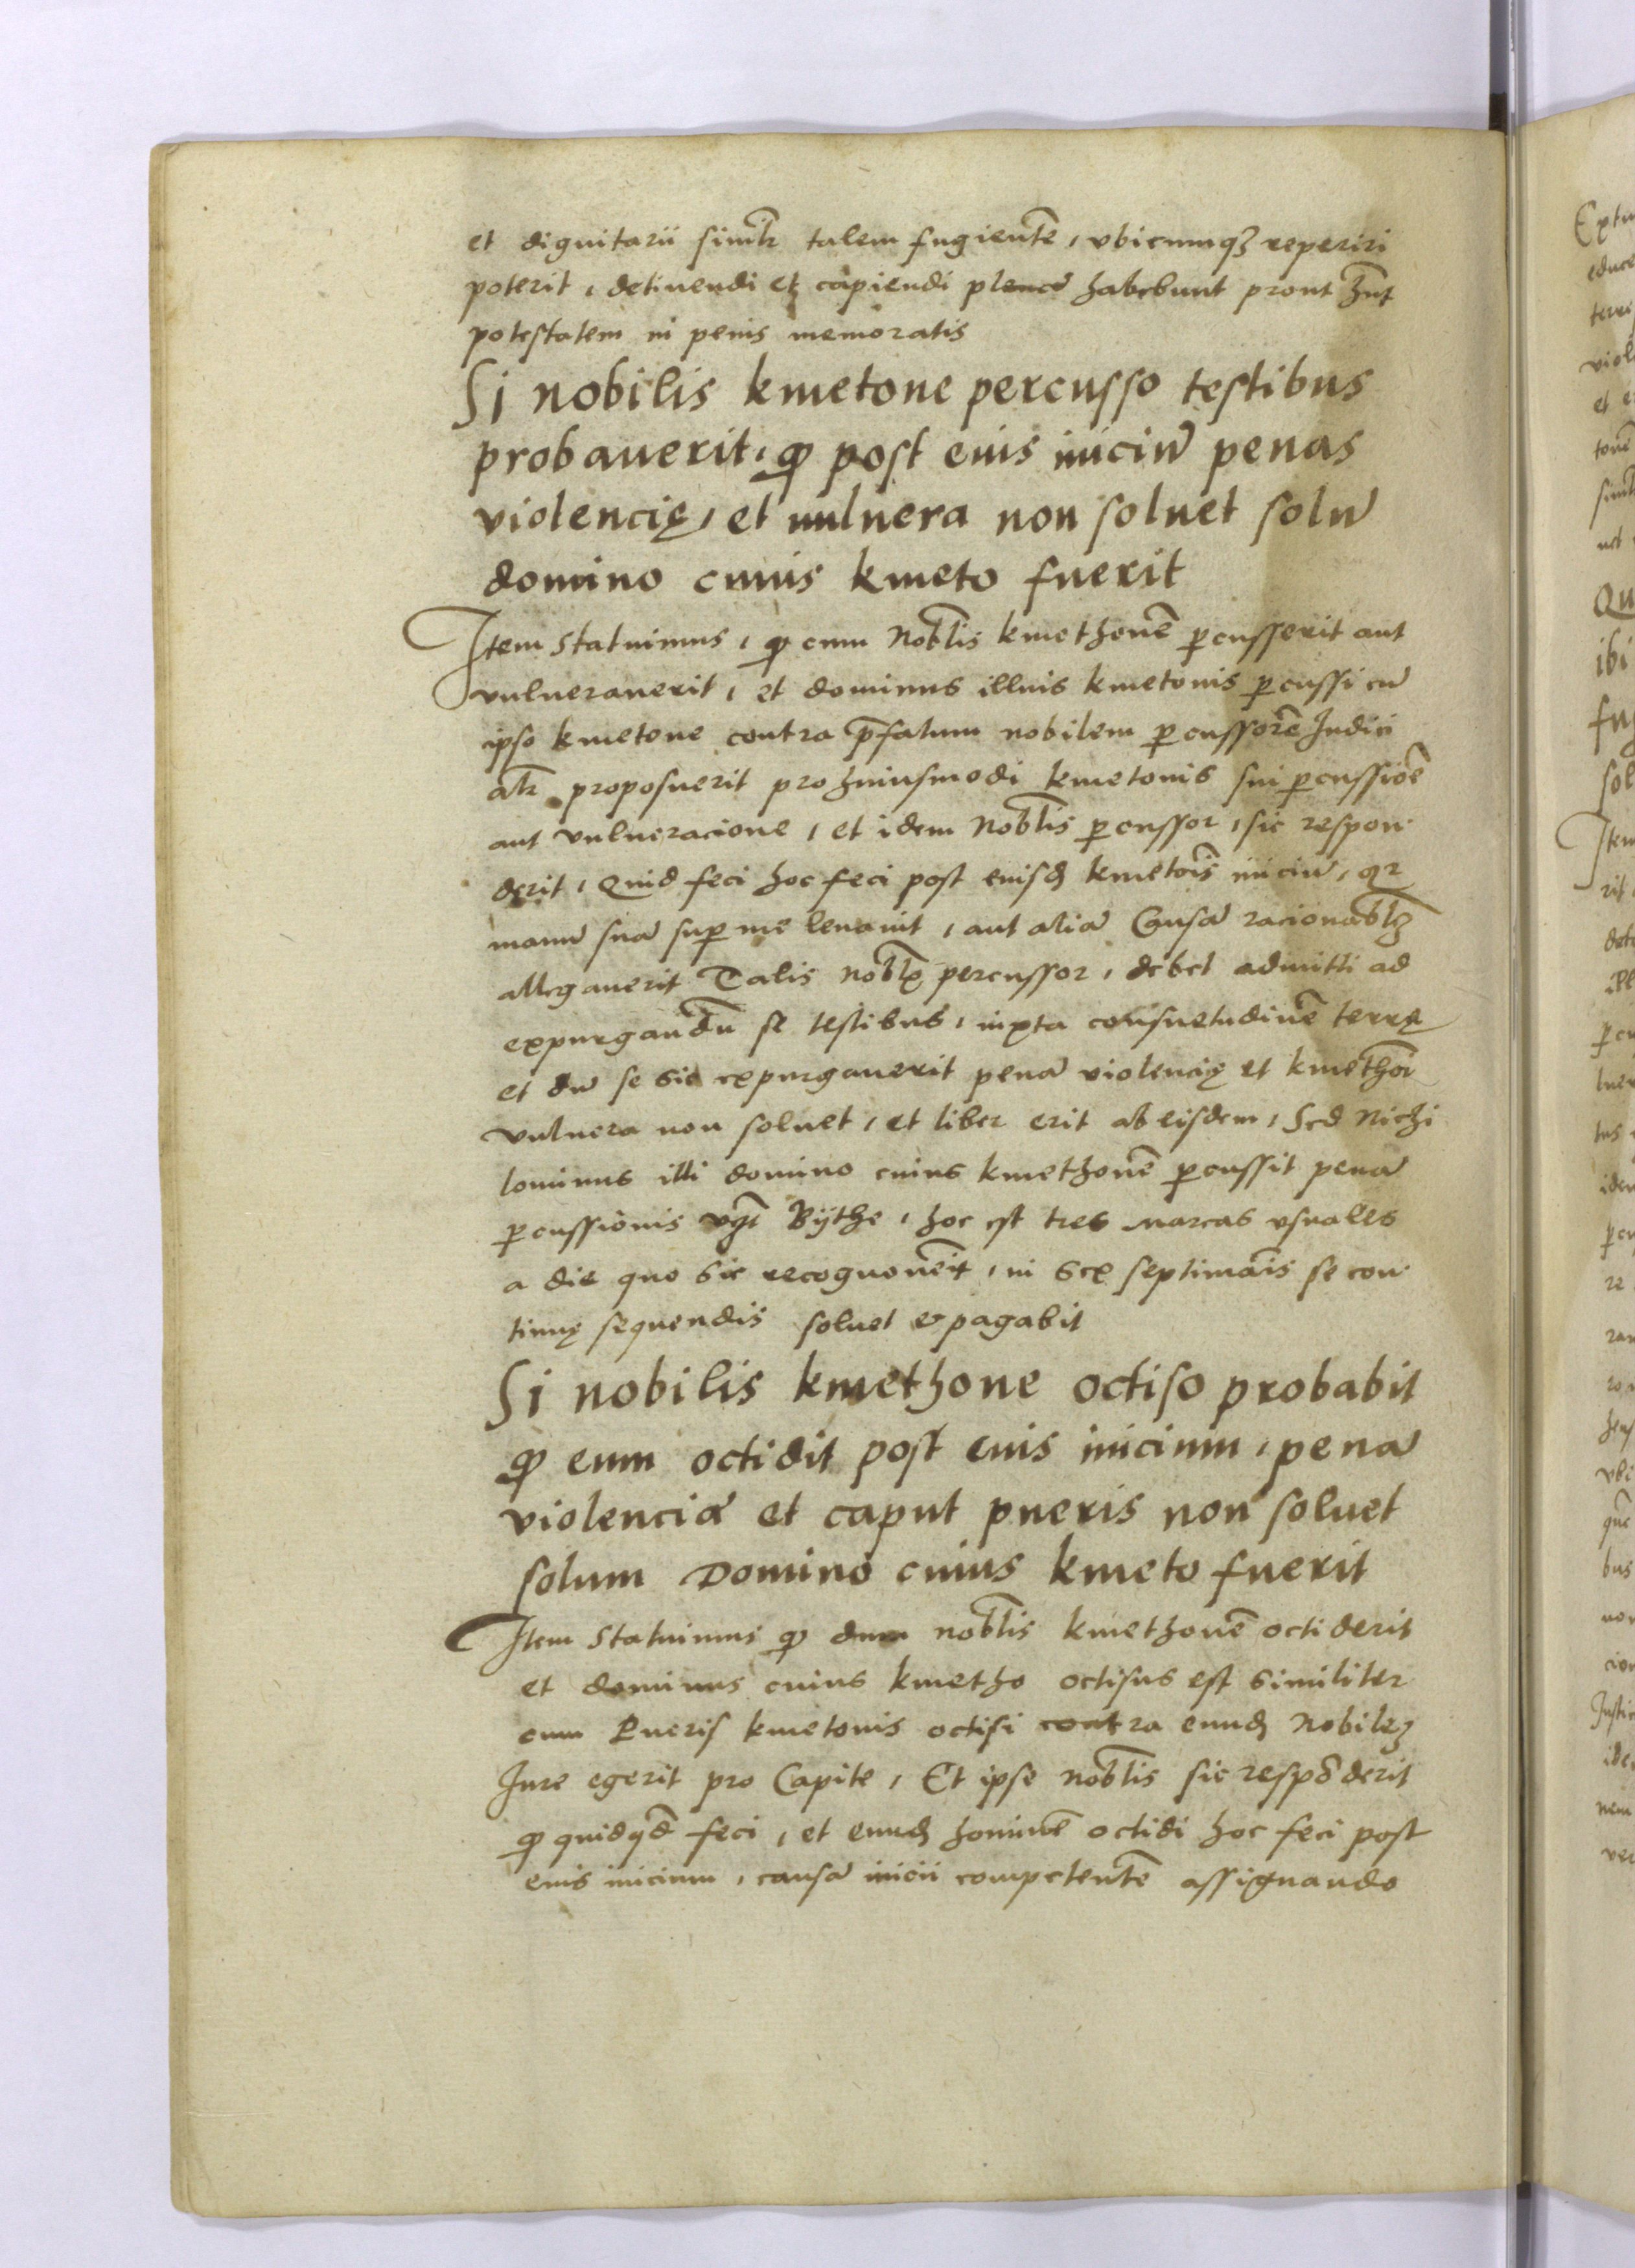 et dignitarii simlr talem fugientē, vbicumqȝ reperiri
poterit, detinendi et capiendi plenā habebunt prout hn̄t
potestatem in penis memoratis
Si nobilis kmetone percusso testibus
probauerit, ꝙ post eius iniciū penas
violencię, et uulnera non soluet solū
domino cuius kmeto fuerit
Item Statuimus, ꝙ cum Nobl̄is kmethonē ꝑcusserit aut
vulnerauerit, et dominus illius kmetonis ꝑcussi cū
ipso kmetone contra p̄fatum nobilem ꝑcussorē Iudici
alr̄ proposuerit pro huiusmodi kmetonis sui ꝑcussiōe
aut vulneracione, et idem Nobl̄is ꝑcussor, sic respon
derit, Quid feci hoc feci post eiusd kmetōis iniciū, qr
manū suā suꝑ me leuauit, aut aliā Causā racionabl̄ȝ
allegauerit Talis nobl̄ percussor, debet admitti ad
expurgandū se testibus, iuxta consuetudinē terrę
et dū se sic expurgauerit penā violencię et kmethoī
vulnera non soluet, et liber erit ab eisdem, Sed Nichi
lominus illi domino cuius kmethonē ꝑcussit penā
ꝑcussionis vgt̄ Bÿthe, hoc est tres marcas vsuales
a die quo sic recognouerit, in Sex septimāis se con
tinuę sequendis soluet & pagabit
Si nobilis kmethone octiso probabit
ꝙ eum octidit post eius inicium, penā
violenciā et caput pueris non soluet
solum Domino cuius kmeto fuerit
Item Statuimus ꝙ dum nobl̄is kmethonē octiderit
et dominus cuius kmetho octisus est similiter
cum Pueris kmetonis octisi contra eund Nobileȝ
Iure egerit pro Capite, Et ipse nobl̄is sic respōderit
ꝙ quidqd̄ feci, et eund hominē octidi hoc feci post
eius inicium, causā inicii competentē assignando